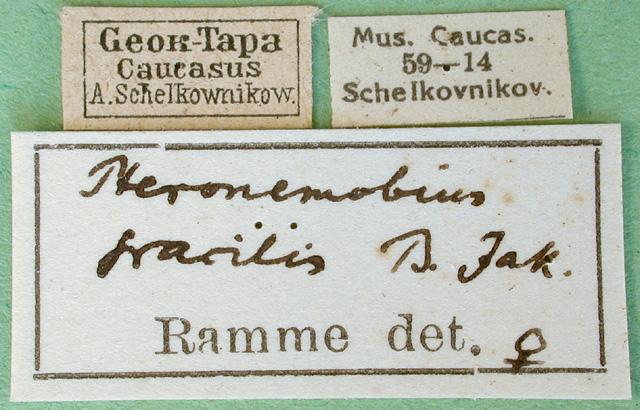 Geok-Tapa
Caucasus
A. Schelkownikow.
Mus. Caucas.
59–14
Schelkovnikov.
Pteronemobius
gracilis B. Jak.
Ramme det. ♀